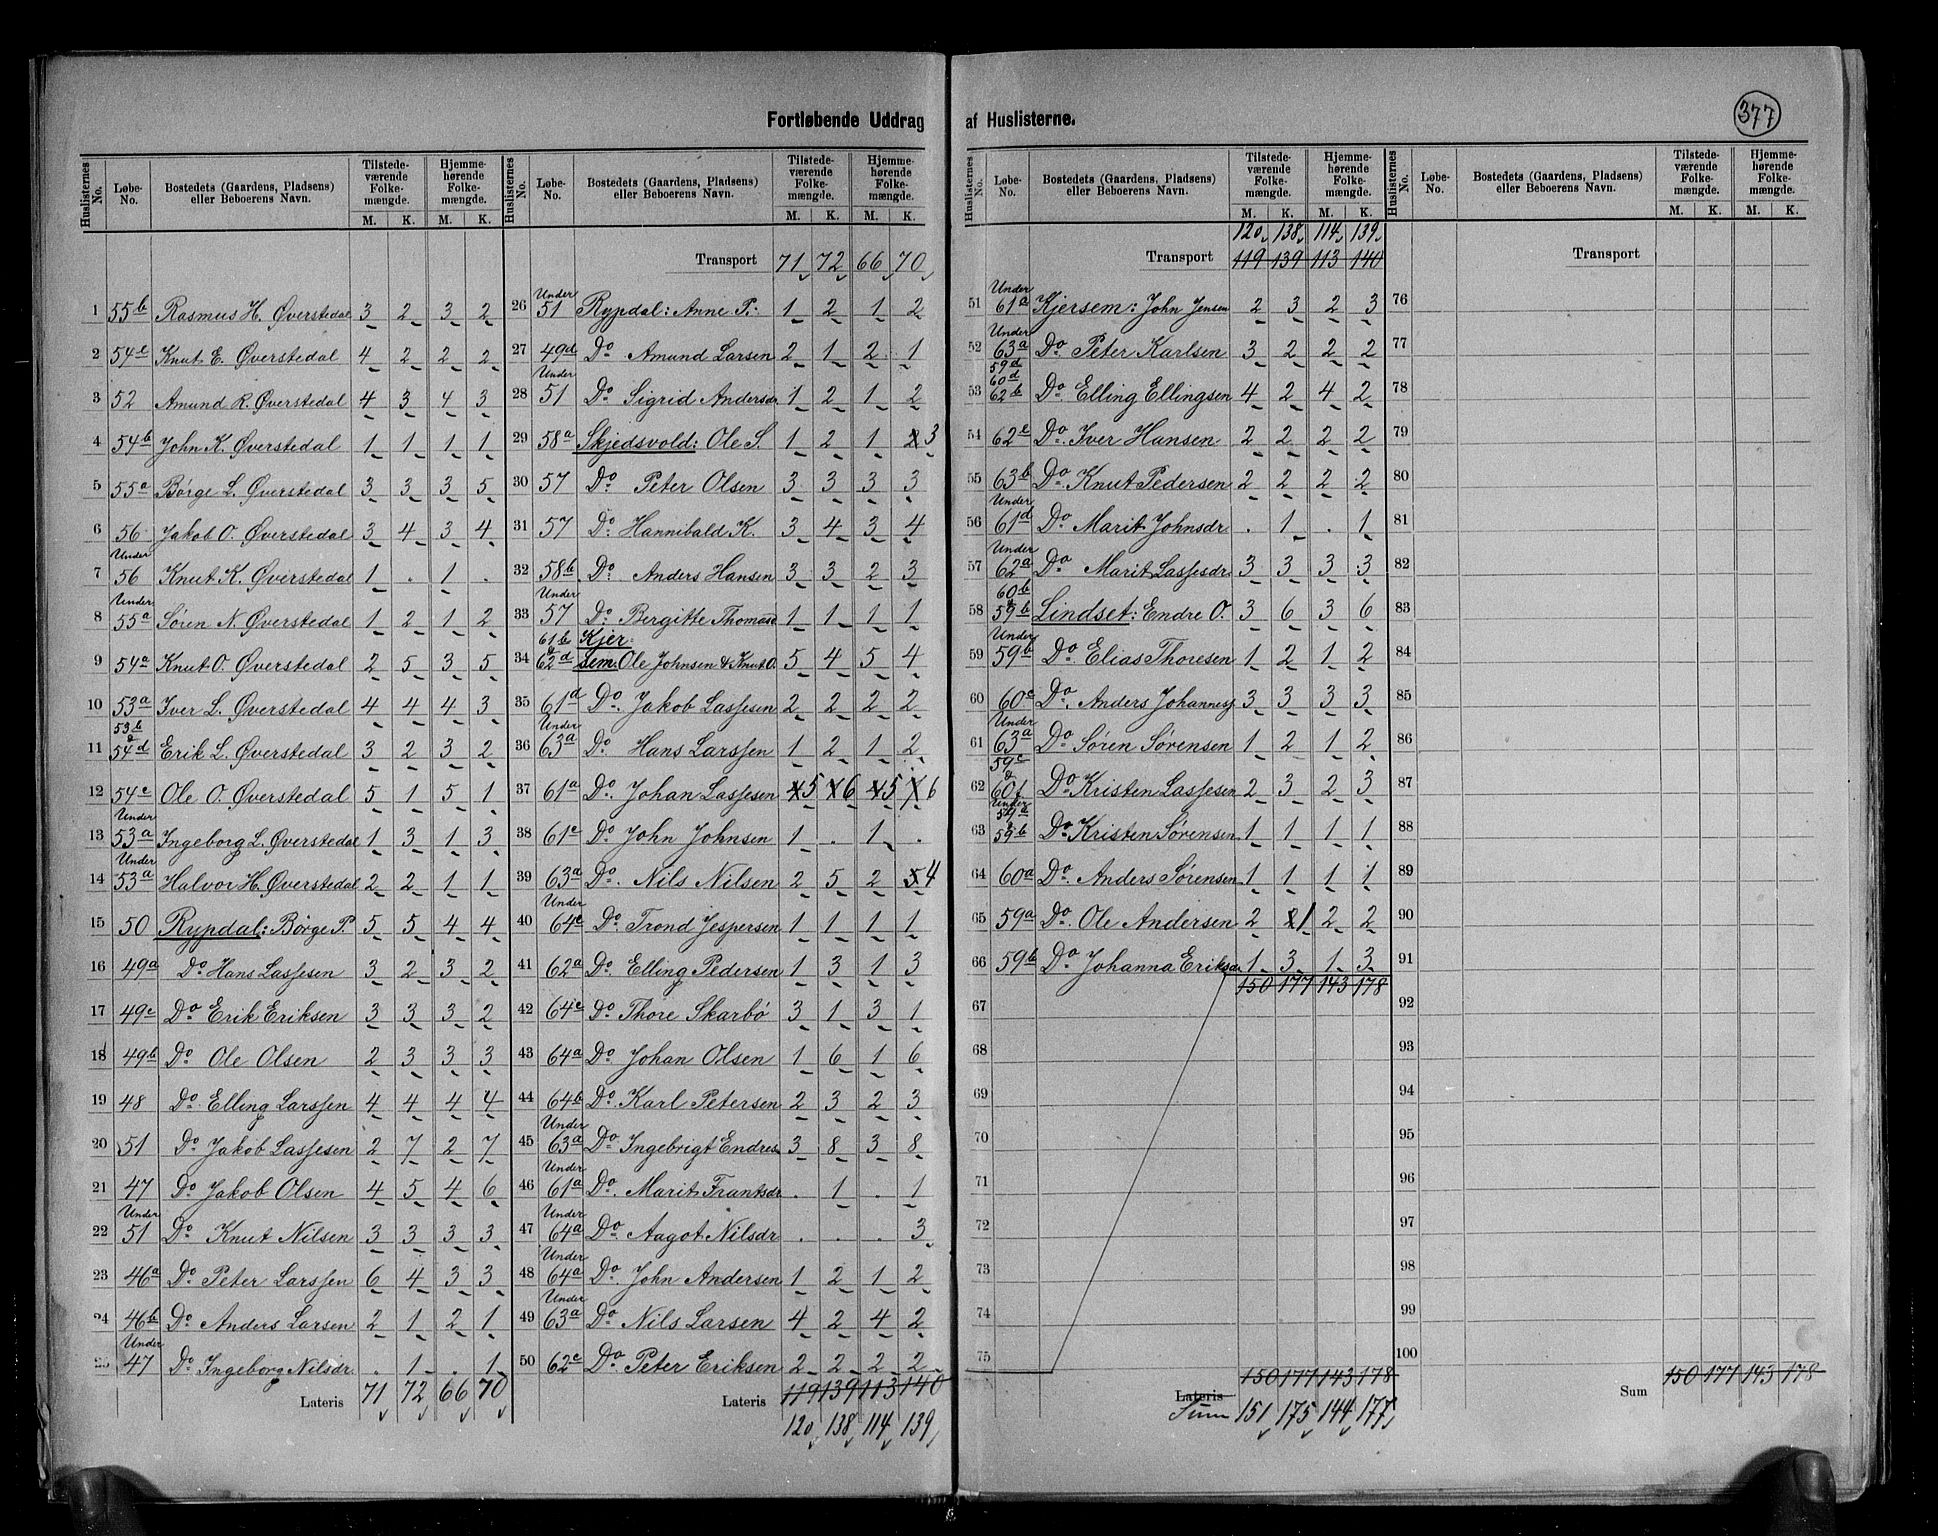 377
Fortløbende Uddrag af Huslisterne.
Huslisternes No. | Løbe-No. | Bostedets (Gaardens, Pladsens) eller Beboerens Navn. | Tilstedeværende Folkemængde. M. K. | Hjemmehørende Folkemængde. M. K.
1 55b Rasmus H. Øverstedal 3 2 3 2
2 54e Knut E. Øverstedal 4 2 2 2
3 52 Amund R. Øverstedal 4 3 4 3
4 54b John K. Øverstedal 1 1 1 1
5 55a Børge L. Øverstedal 3 3 3 5
6 56 Jakob O. Øverstedal 3 4 3 4
7 Under 56 Knut K. Øverstedal 1 . 1 .
8 Under 55a Søren N. Øverstedal 1 2 1 2
9 54a Knut O. Øverstedal 2 5 3 5
10 53a Iver L. Øverstedal 4 4 4 3
11 53b & 54d Erik L. Øverstedal 3 2 3 2
12 54c Ole O. Øverstedal 5 1 5 1
13 Under 53a Ingeborg L. Øverstedal 1 3 1 3
14 Under 53a Halvor H. Øverstedal 2 2 1 1
15 50 Rypdal: Børge P. 5 5 4 4
16 49a Do Hans Lassesen 3 2 3 2
17 49c Do Erik Eriksen 3 3 3 2
18 49b Do Ole Olsen 2 3 3 3
19 48 Do Elling Larssen 4 4 4 4
20 51 Do Jakob Lassesen 2 7 2 7
21 47 Do Jakob Olsen 4 5 4 6
22 Under 51 Do Knut Nilsen 3 3 3 3
23 46a Do Peter Larssen 6 4 3 3
24 46b Do Anders Larsen 2 1 2 1
25 Under 47 Do Ingeborg Nilsdr. . 1 . 1
Lateris 71 72 66 70
Huslisternes No. | Løbe-No. | Bostedets (Gaardens, Pladsens) eller Beboerens Navn. | Tilstedeværende Folkemængde. M. K. | Hjemmehørende Folkemængde. M. K.
Transport 71 72 66 70
26 Under 51 Rypdal: Anne P. 1 2 1 2
27 49d Do Amund Larsen 2 1 2 1
28 Under 51 Do Sigrid Andersdr. 1 2 1 2
29 58a Skjedsvold: Ole S. 1 2 1 2 3
30 57 Do Peter Olsen 3 3 3 3
31 57 Do Hannibald K. 3 4 3 4
32 58b Do Anders Hansen 3 3 2 3
33 Under 57 Do Bergitte Thomasd 1 1 1 1
34 61b & 62d Kjersem: Ole Johnsen & Knut O. 5 4 5 4
35 61d Do Jakob Lassesen 2 2 2 2
36 Under 63a Do Hans Larssen 1 2 1 2
37 61a Do Johan Lassesen 5 6 5 6
38 61c Do John Johnsen 1 . 1 .
39 63a Do Nils Nilsen 2 5 2 5 4
40 Under 64c Do Trond Jespersen 1 1 1 1
41 62a Do Elling Pedersen 1 3 1 3
42 64c Do Thore Skarbø 3 1 3 1
43 64a Do Johan Olsen 1 6 1 6
44 64b Do Karl Petersen 2 3 2 3
45 Under 63a Do Ingebrigt Endres 3 8 3 8
46 Under 61a Do Marit Frantsdr . 1 . 1
47 Under 64a Do Aagot Nilsdr . . . 3
48 Under 64a Do John Andersen 1 2 1 2
49 Under 63a Do Nils Larsen 4 2 4 2
50 62c Do Peter Eriksen 2 2 2 2
Lateris 119 139 113 140
120 138 114 139
Huslisternes No. | Løbe-No. | Bostedets (Gaardens, Pladsens) eller Beboerens Navn. | Tilstedeværende Folkemængde. M. K. | Hjemmehørende Folkemængde. M. K.
120 138 114 139
Transport 119 139 113 140
51 Under 61a Kjersem: John Jensen 2 3 2 3
52 Under 63a Do Peter Karlsen 3 2 2 2
53 59d 60d 62b Do Elling Ellingsen 4 2 4 2
54 62e Do Iver Hansen 2 2 2 2
55 63b Do Knut Pedersen 2 2 2 2
56 Under 61d Do Marit Johnsdr . 1 . 1
57 Under 62a Do Marit Lassesdr. 3 3 3 3
58 60b & 59b Lindset: Endre O. 3 6 3 6
59 Under 59b Do Elias Thoresen 1 2 1 2
60 60c Do Anders Johannes 3 3 3 3
61 Under 63a Do Søren Sørensen 1 2 1 2
62 59c & 60f Do Kristen Lassesen 2 3 2 3
63 Under 59a & 59b Do Kristen Sørensen 1 1 1 1
64 60a Do Anders Sørensen 1 1 1 1
65 59a Do Ole Andersen 2 2 1 2 2
66 59b Do Johanna Eriksdr 1 3 1 3
150 177 143 178
67
68
69
70
71
72
73
74
75
150 177 143 178
Lateris
Sum 151 175 144 177
Huslisternes No. | Løbe-No. | Bostedets (Gaardens, Pladsens) eller Beboerens Navn. | Tilstedeværende Folkemængde. M. K. | Hjemmehørende Folkemængde. M. K.
Transport
76
77
78
79
80
81
82
83
84
85
86
87
88
89
90
91
92
93
94
95
96
97
98
99
100
Sum 150 177 143 178